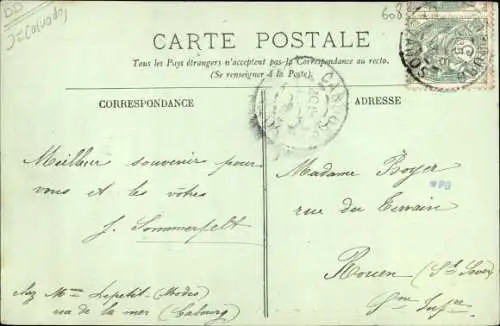 DD
J= (Calvados)
608
CARTE POSTALE
Tous les Pays étrangers n'acceptent pas la Correspondance au recto.
(Se renseigner à la Poste).
CORRESPONDANCE
ADRESSE
CABOURG
Meilleur souvenir pour
vous et les vôtres
J. Sommerfelt
chez Mme Lepetit (Modes)
rue de la mer (Cabourg)
Madame Boyer
rue du Terrain
Rouen (St Sever)
Sne Infre